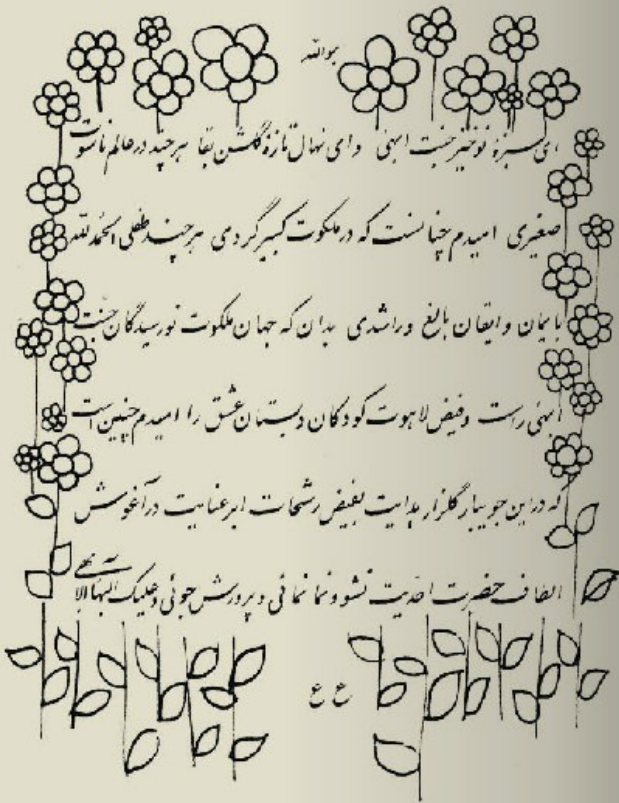 هوالله
ای سبزهٔ نوخیز جنت ابهی و ای نهال تازهٔ گلشن بقا هر چند در عالم ناسوت
صغیری امیدم چنانست که در ملکوت کبیر گردی هر چند طفلی الحمد لله
با یمان و ایقان بالغ و راشدی بدان که جهان ملکوت نورسیدگان جنت
ابهی راست و فیض لاهوت کودکان دبستان عشق را امیدم چنین است
که در این جویبار گلزار هدایت بفیض رشحات ابر عنایت در آغوش
الطاف حضرت احدیت نشو و نما نمائی و پرورش جوئی و علیک البهاء الأبهی
ع ع